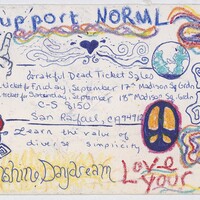 Support NORML
Grateful Dead Ticket Sales
ticket for Friday, September 17th Madison Sq Grdn
ticket for Saturday, September 18th Madison Sq. Grdn
C-S 8150
San Rafael, CA 94912
Learn the value of
diverse simplicity
Sunshine Daydream
Love
Your